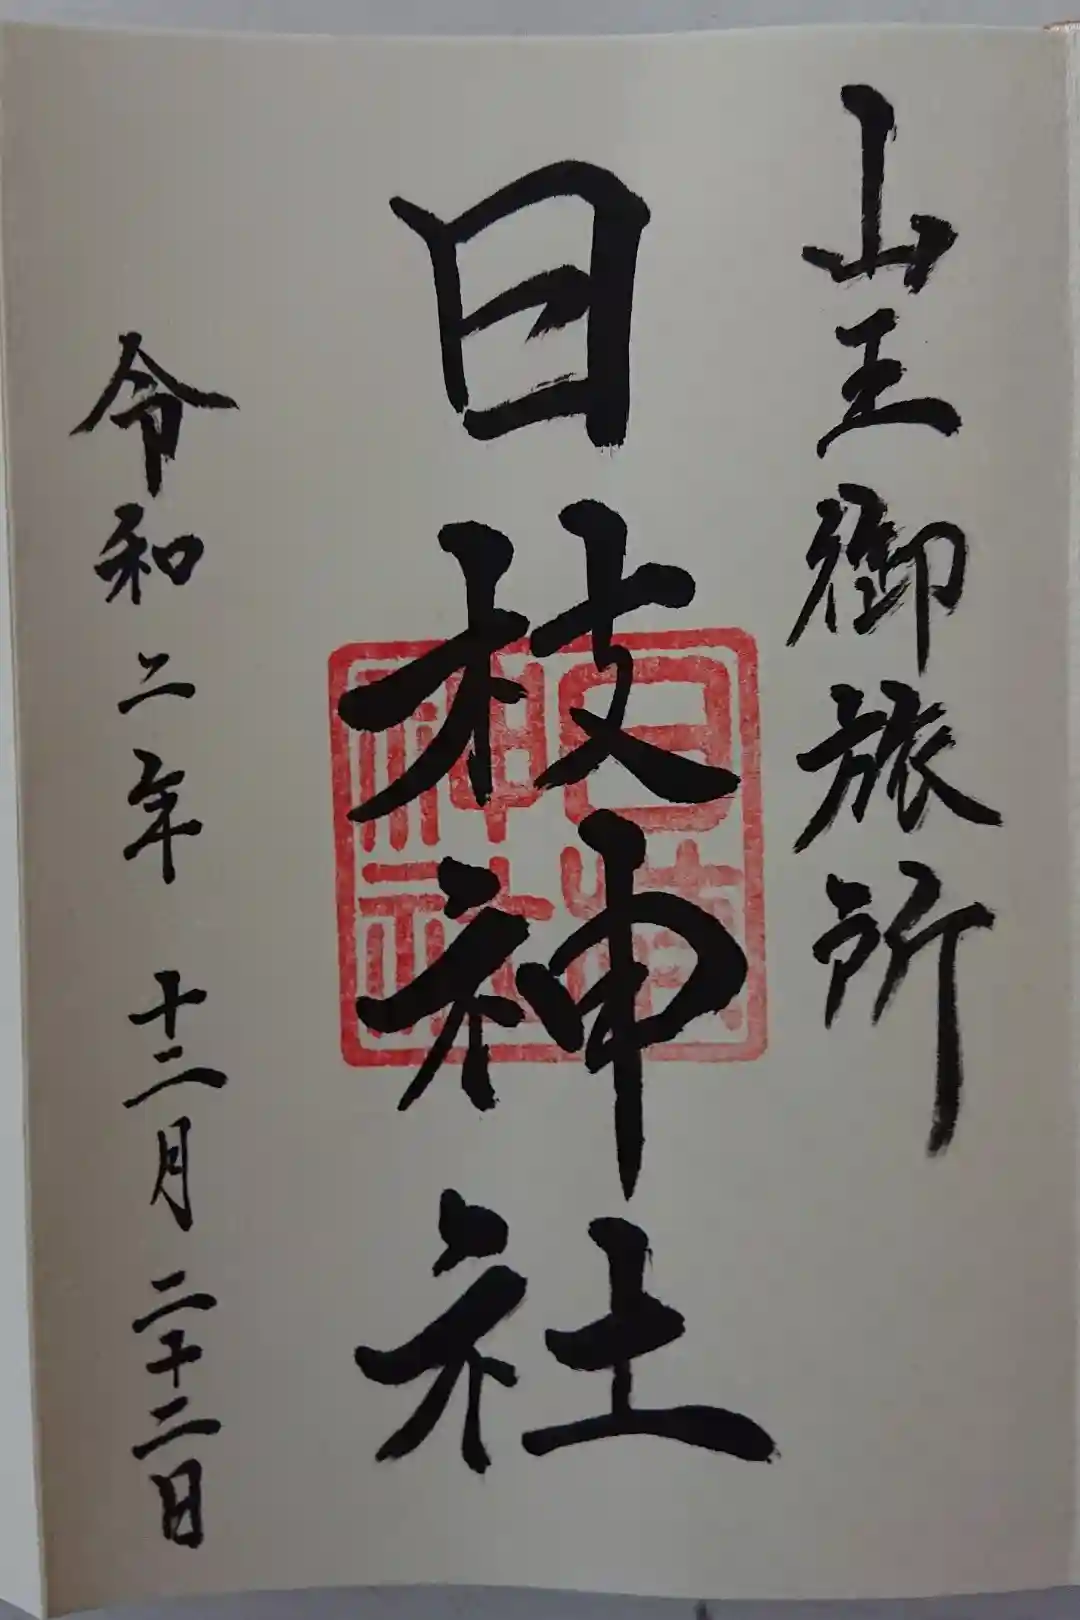 山王御旅所
日枝神社
令和二年 十二月 二十二日
日枝
神社